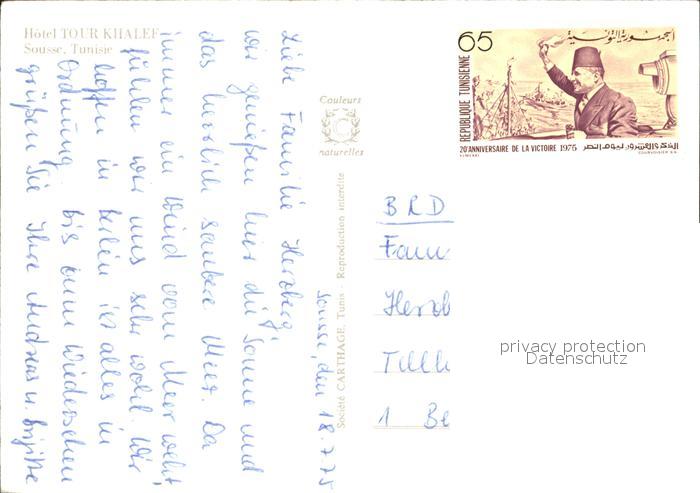 Hôtel TOUR KHALEF
Sousse, Tunisie
Sousse, den 18.7.75
Liebe Familie Herzberg,
wir genießen hier die Sonne und
das herrlich saubere Meer. Da
immer ein Wind vom Meer weht,
fühlen wir uns sehr wohl. Wir
hoffen in Berlin ist alles in
Ordnung. Bis zum Wiedersehen
grüßen Sie Ihre Andreas u. Brigitte
Couleurs
naturelles
Société CARTHAGE, Tunis - Reproduction interdite
65
الجمهورية التونسية
REPUBLIQUE TUNISIENNE
20e ANNIVERSAIRE DE LA VICTOIRE 1975
الذكرى العشرون ليوم النصر
COURVOISIER S.A.
BRD
Fam
Herzb
Till
1 Be
privacy protection
Datenschutz